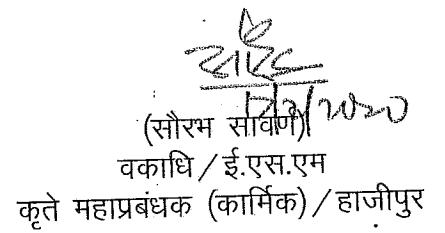 सौरभ
(सौरभ सावर्ण)
वकाधि / ई.एस.एम
कृते महाप्रबंधक (कार्मिक) / हाजीपुर